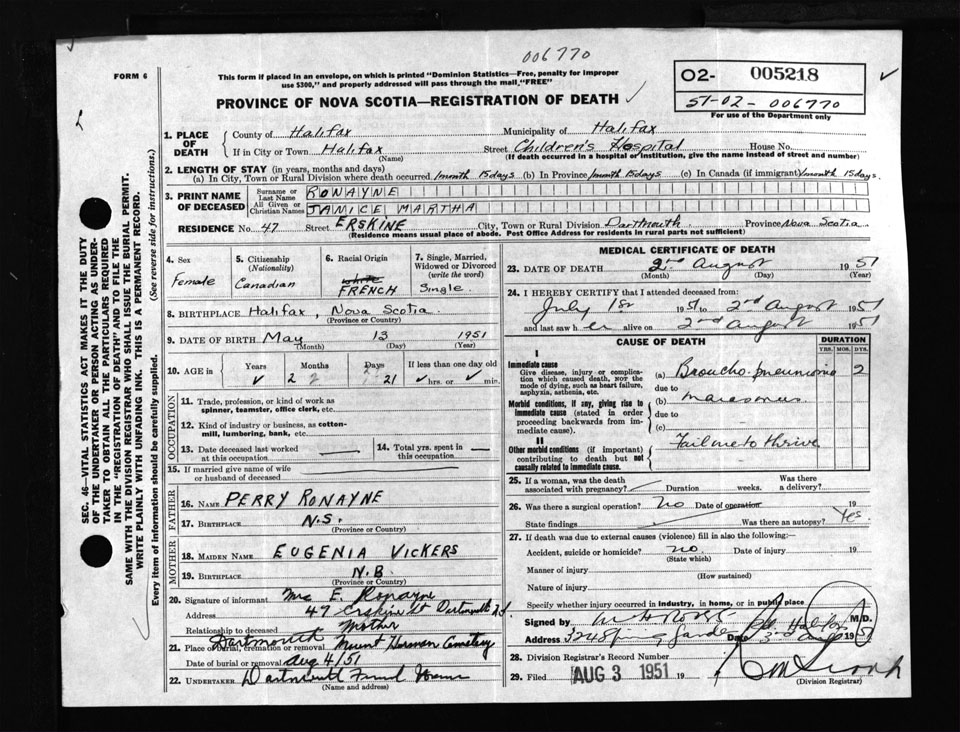 006770
FORM 6
This form if placed in an envelope, on which is printed "Dominion Statistics—Free, penalty for improper
use $300," and properly addressed will pass through the mail "FREE"
O2- 005218
51-02-006770
For use of the Department only
PROVINCE OF NOVA SCOTIA—REGISTRATION OF DEATH
1. PLACE OF DEATH
County of Halifax Municipality of Halifax
If in City or Town Halifax Street Children's Hospital House No.
(Name) (If death occurred in a hospital or institution, give the name instead of street and number)
2. LENGTH OF STAY (in years, months and days)
(a) In City, Town or Rural Division where death occurred 1 month 15 days (b) In Province 1 month 15 days (c) In Canada (if immigrant) 1 month 15 days.
3. PRINT NAME OF DECEASED
Surname or Last Name RONAYNE
All Given or Christian Names JANICE MARTHA
RESIDENCE No. 47 Street ERSKINE City, Town or Rural Division Dartmouth Province Nova Scotia
(Residence means usual place of abode. Post Office Address for residents in rural parts not sufficient)
4. Sex
Female
5. Citizenship
(Nationality)
Canadian
6. Racial Origin
white
FRENCH
7. Single, Married, Widowed or Divorced
(write the word)
Single
8. BIRTHPLACE Halifax, Nova Scotia.
(Province or Country)
9. DATE OF BIRTH May 13 1951
(Month) (Day) (Year)
10. AGE in Years Months Days If less than one day old
2 2 21 hrs. or min.
OCCUPATION
11. Trade, profession, or kind of work as
spinner, teamster, office clerk, etc.
12. Kind of industry or business, as cotton-
mill, lumbering, bank, etc.
13. Date deceased last worked
at this occupation
14. Total yrs. spent in
this occupation
15. If married give name of wife
or husband of deceased
FATHER
16. NAME PERRY RONAYNE
17. BIRTHPLACE N.S.
(Province or Country)
MOTHER
18. MAIDEN NAME EUGENIA VICKERS
19. BIRTHPLACE N.B.
(Province or Country)
20. Signature of informant Mrs E. Ronayne
Address 47 Erskine St Dartmouth N.S
Relationship to deceased Mother
21. Place of burial, cremation or removal Dartmouth Mount Hermon Cemetery
Date of burial or removal Aug 4/51
22. UNDERTAKER Dartmouth Funeral Home
(Name and address)
MEDICAL CERTIFICATE OF DEATH
23. DATE OF DEATH 2nd August 1951
(Month) (Day) (Year)
24. I HEREBY CERTIFY that I attended deceased from:
July 1st 1951 to 2nd August 1951
and last saw her alive on 2nd August 1951
CAUSE OF DEATH
DURATION
YRS. MOS. DYS.
I
Immediate cause
Give disease, injury or complica-
tion which caused death, NOT the
mode of dying, such as heart failure,
asphyxia, asthenia, etc.
(a) Broncho-pneumonia 2
due to
Morbid conditions, if any, giving rise to
immediate cause (stated in order
proceeding backwards from im-
mediate cause).
(b) marasmus
due to
(c)
II
Other morbid conditions (if important)
contributing to death but not
causally related to immediate cause.
Failure to thrive
25. If a woman, was the death
associated with pregnancy? Duration weeks. Was there
a delivery?
26. Was there a surgical operation? no Date of operation 19
State findings Was there an autopsy? Yes.
27. If death was due to external causes (violence) fill in also the following:—
Accident, suicide or homicide? no. Date of injury 19
(State which)
Manner of injury
(How sustained)
Nature of injury
Specify whether injury occurred in industry, in home, or in public place
Signed by M.D.
Address Date 3rd Aug 1951
28. Division Registrar's Record Number
29. Filed AUG 3 1951 19
(Division Registrar)
SEC. 46—VITAL STATISTICS ACT MAKES IT THE DUTY
OF THE UNDERTAKER OR PERSON ACTING AS UNDER-
TAKER TO OBTAIN ALL THE PARTICULARS REQUIRED
IN THE "REGISTRATION OF DEATH" AND TO FILE THE
SAME WITH THE DIVISION REGISTRAR WHO SHALL ISSUE THE BURIAL PERMIT.
WRITE PLAINLY WITH UNFADING INK. THIS IS A PERMANENT RECORD.
Every item of information should be carefully supplied. (See reverse side for instructions.)